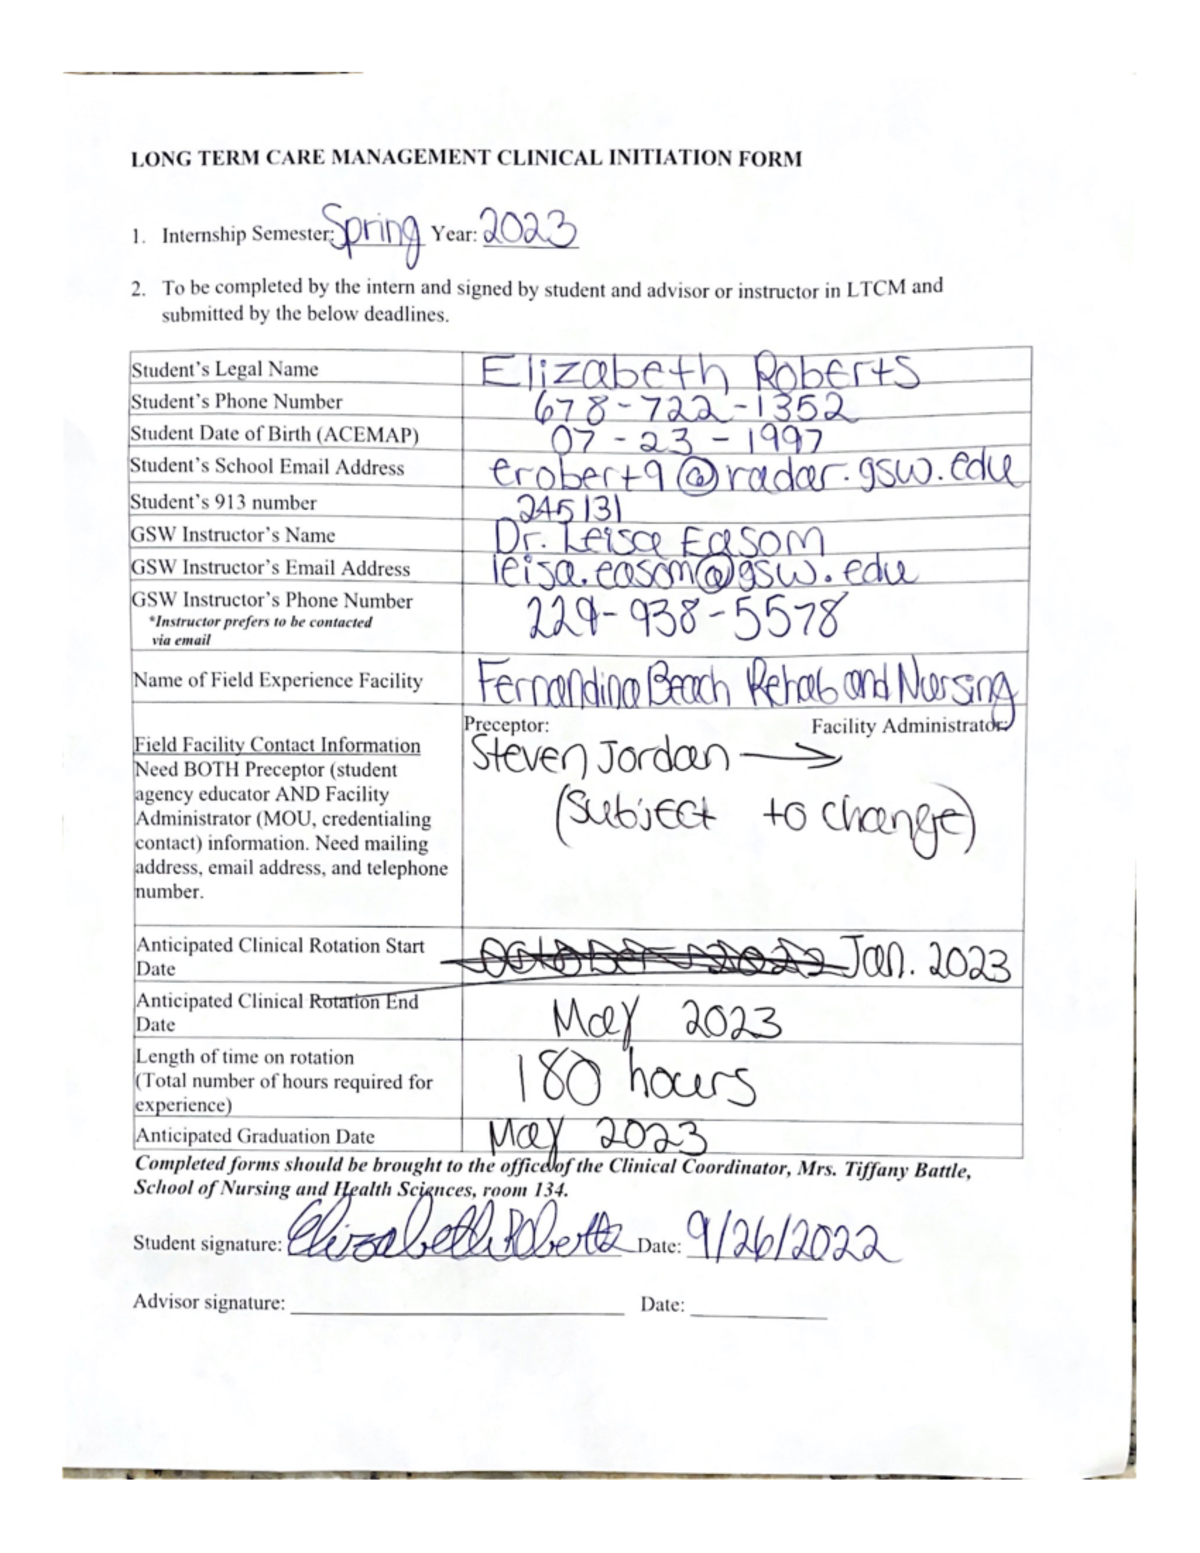 LONG TERM CARE MANAGEMENT CLINICAL INITIATION FORM
1. Internship Semester: Spring Year: 2023
2. To be completed by the intern and signed by student and advisor or instructor in LTCM and
submitted by the below deadlines.
Student's Legal Name Elizabeth Roberts
Student's Phone Number 678-722-1352
Student Date of Birth (ACEMAP) 07-23-1997
Student's School Email Address erobert9@radar.gsw.edu
Student's 913 number 245131
GSW Instructor's Name Dr. Leisa Easom
GSW Instructor's Email Address leisa.easom@gsw.edu
GSW Instructor's Phone Number 229-938-5578
*Instructor prefers to be contacted
via email
Name of Field Experience Facility Fernandina Beach Rehab and Nursing
Preceptor: Facility Administrator:
Steven Jordan →
(Subject to change)
Field Facility Contact Information
Need BOTH Preceptor (student
agency educator AND Facility
Administrator (MOU, credentialing
contact) information. Need mailing
address, email address, and telephone
number.
Anticipated Clinical Rotation Start October 2022 Jan. 2023
Date
Anticipated Clinical Rotation End May 2023
Date
Length of time on rotation 180 hours
(Total number of hours required for
experience)
Anticipated Graduation Date May 2023
Completed forms should be brought to the office of the Clinical Coordinator, Mrs. Tiffany Battle,
School of Nursing and Health Sciences, room 134.
Student signature: Elizabeth Roberts Date: 9/26/2022
Advisor signature: Date: